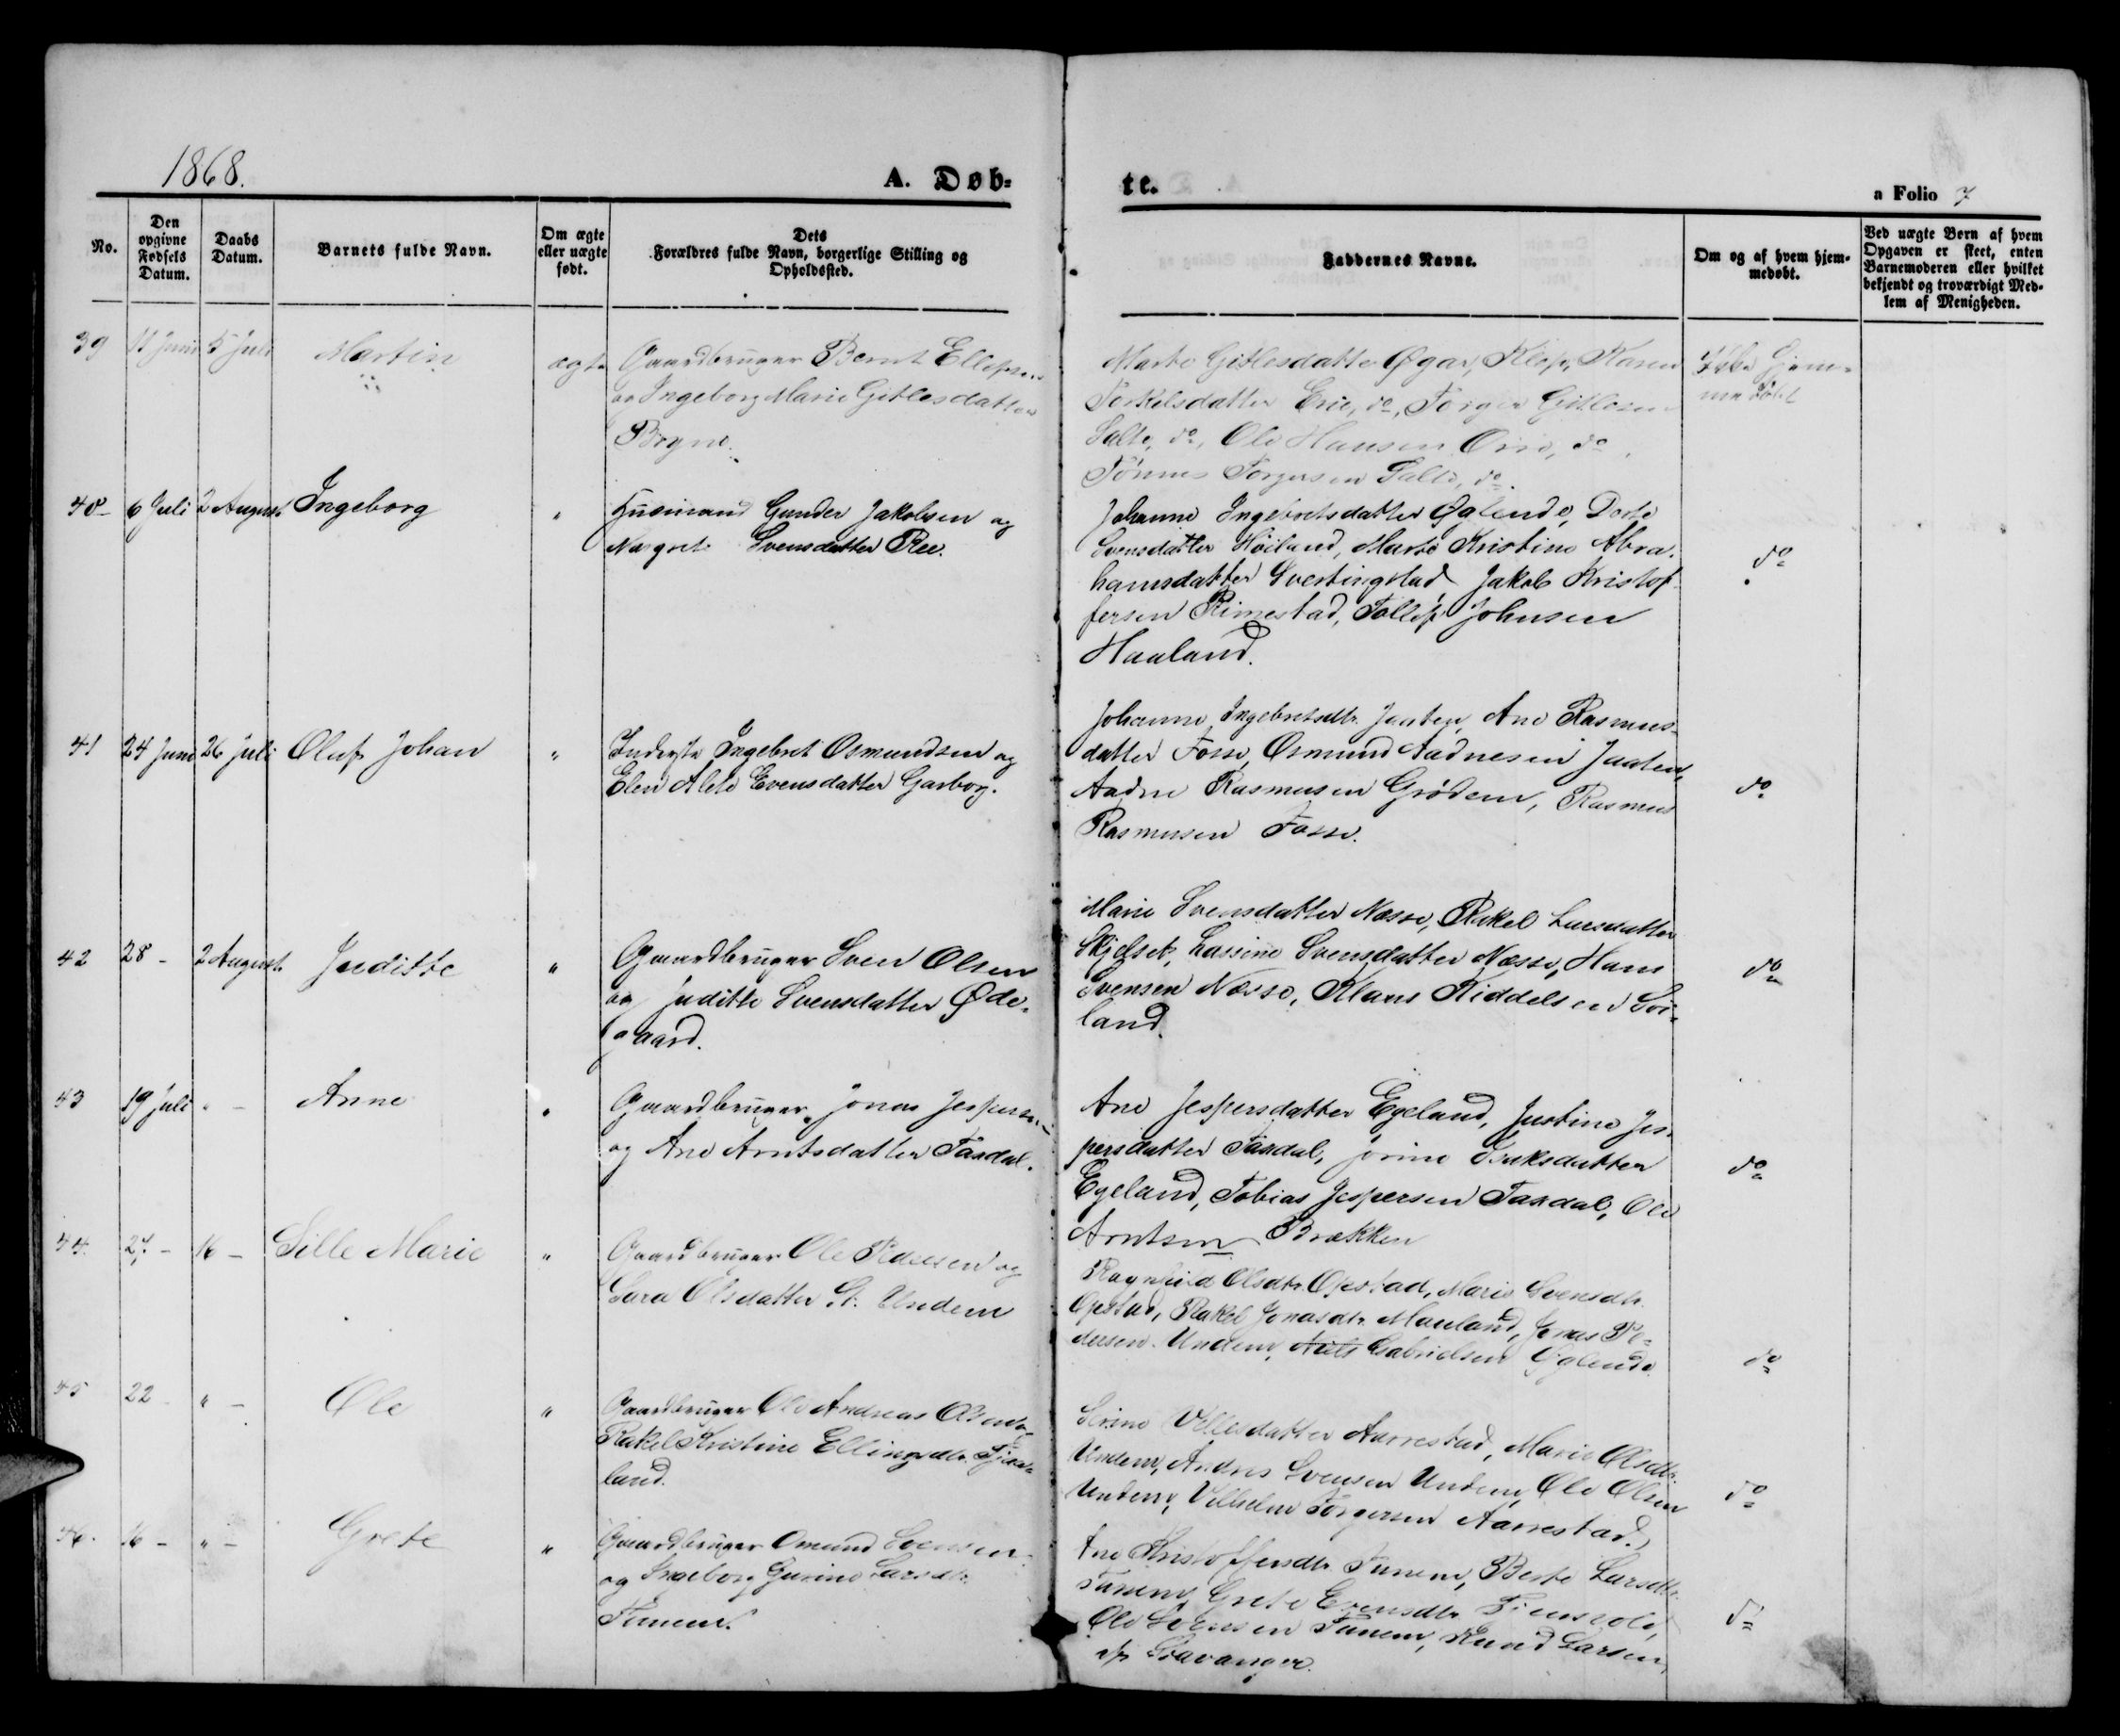 1868.
A. Døb-
te.
a Folio 7
No.
Den opgivne Fødsels Datum.
Daabs Datum.
Barnets fulde Navn.
Om ægte eller uægte født.
Dets Forældres fulde Navn, borgerlige Stilling og Opholdssted.
Faddernes Navne.
Om og af hvem hjem-medøbt.
Ved uægte Børn af hvem Opgaven er skeet, enten Barnemoderen eller hvilket bekjendt og troværdigt Med-lem af Menigheden.
39 11 Juni 5 Juli Martin ægte Gaardbruger Bernt Ellefsen
og Ingeborg Marie Gitlesdatter
Bryne.
Marte Gitlesdatter Øgar, Klep, Karen
Torkelsdatter Erie, do, Torger Gitlesen
Salte, do, Ole Hansen Orre, do,
Tønnes Torgersen Salte, do.
Ikke Hjem-
medøbt
40 6 Juli 2 August Ingeborg " Husmand Gunder Jakobsen og
Margrete Svensdatter Ree.
Johanne Ingebretsdatter Øglende, Dorte
Svensdatter Høiland, Marte Kristine Abra-
hamsdatter Svertingstad, Jakob Kristof-
fersen Rimestad, Tollef Johnsen
Haaland.
do
41 24 Juni 26 Juli Oluf Johan " Inderste Ingebret Osmundsen og
Elen Alete Evensdatter Garborg.
Johanne Ingebretsdtr. Jaaten, Ane Rasmus-
datter Fosse, Osmund Aadnesen Jaaten,
Aadne Rasmusen Grødem, Rasmus
Rasmusen Fosse.
do
42 28 - 2 August Juditte " Gaardbruger Sven Olsen
og Juditte Svensdatter Øde-
gaard.
Marie Svensdatter Næsse, Rakel Larsdatter
Skjelset, Lassine Svensdatter Næsse, Hans
Svensen Næsse, Klaus Riddelsen Sør-
land.
do
43 19 Juli " - Anne " Gaardbruger Jonas Jespersen
og Ane Arntsdatter Taxdal.
Ane Jespersdatter Egeland, Justine Jes-
persdatter Taxdal, Jorine Isaksdatter
Egeland, Tobias Jespersen Taxdal, Ole
Arntsen Brækken
do
44. 27 - 16 - Sille Marie " Gaardbruger Ole Pedersen og
Sara Olsdatter St. Undem
Ragnhild Olsdtr. Opstad, Marie Svensdtr.
Opstad, Rakel Jonasdtr. Mauland, Jonas Pe-
dersen Undem, Niels Gabrielsen Øglende.
do
45 22 - " - Ole " Gaardbruger Ole Andreas Olsen og
Rakel Kristine Ellingsdtr.
land.
Serine Villesdatter Aarrestad, Marie Olsdtr.
Undem, Andres Svensen Undem, Ole Olsen
Undem, Vilhelm Torgersen Aarrestad.
do
46. 16 - " - Grete " Gaardbruger Omund Svensen
og Ingeborg Gurine Larsdtr.
Tunem.
Ane Kristoffersdtr. Tunem, Berte Larsdtr.
Tunem, Grete Evensdtr.
Ole Svensen Tunem, Knud Larsen,
af Stavanger.
do